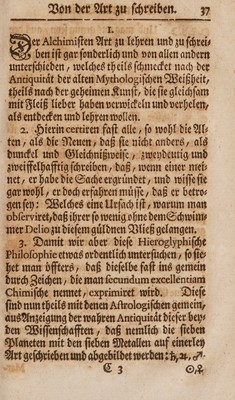 Von der Art zu schreiben. 37
1.
Der Alchimisten Art zu lehren und zu schrei-
ben ist gar sonderlich und von allen andern
unterschieden, welches theils schmecket nach der
Antiquität der alten Mythologischen Weißheit,
theils nach der geheimen Kunst, die sie gleichsam
mit Fleiß lieber haben verwickeln und verhelen,
als entdecken und lehren wollen.
2. Hierin certiren fast alle, so wohl die Al-
ten, als die Neuen, daß sie nicht anders, als
dunckel und Gleichnißweise, zweydeutig und
zweiffelhafftig schreiben, daß, wenn einer mei-
net, er habe die Sache ergründet, und wisse sie
gar wohl, er doch erfahren müsse, daß er betro-
gen sey: Welches eine Ursach ist, warum man
observiret, daß ihrer so wenig ohne dem Schwim-
mer Delio zu diesem güldnen Vließ gelangen.
3. Damit wir aber diese Hieroglyphische
Philosophie etwas ordentlich untersuchen, so sie-
het man öffters, daß dieselbe fast ins gemein
durch Zeichen, die man secundum excellentiam
Chimische nennet, exprimiret wird. Diese
sind nun theils mit denen Astrologischen gemein,
aus Anzeigung der wahren Antiquität dieser bey-
den Wissenschafften, daß nemlich die sieben
Planeten mit den sieben Metallen auf einerley
Art geschrieben und abgebildet werden: ♄, ♃, ♂.
C 3 ☉, ♀